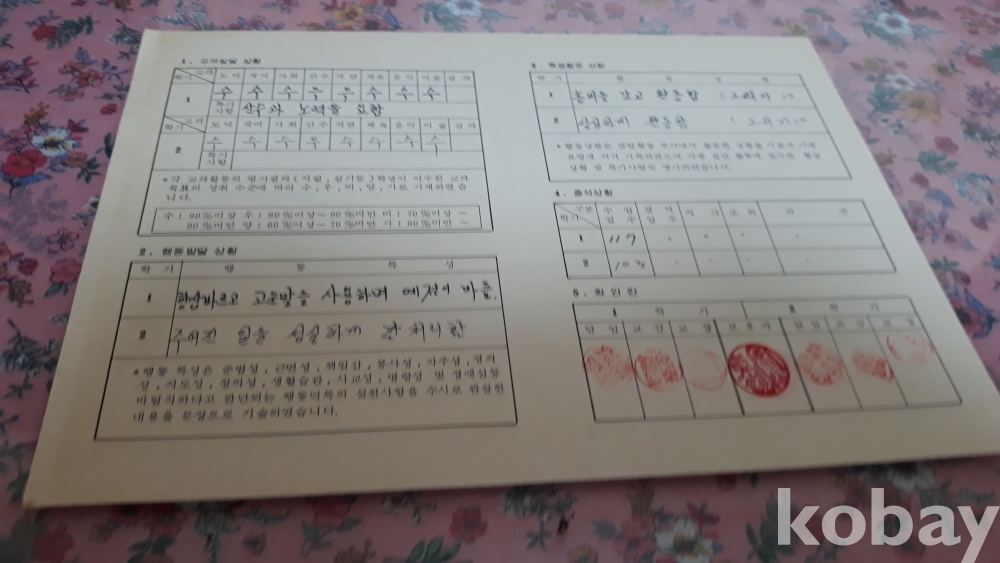 1. 교과발달 상황
학기 교과 도덕 국어 사회 산수 자연 체육 음악 미술 실과
1 수 수 수 우 우 수 수 수
특기사항 산수과 노력을 요함
학기 교과 도덕 국어 사회 산수 자연 체육 음악 미술 실과
2 수 수 수 우 수 수 수 수
특기사항
* 각 교과활동의 평가결과(지필, 실기등) 학생이 이수한 교과
목표의 성취 수준에 따라 수, 우, 미, 양, 가로 기재하였습
니다.
수: 90%이상 우: 80%이상~90%미만 미: 70%이상~
80%미만 양: 60%이상~70%미만 가: 60%미만
2. 행동발달 상황
학기 행동특성
1 바르고 고운말을 사용하며 예절이 바름.
2 주어진 일을 성실하게 잘 처리함
* 행동 특성은 준법성, 근면성, 책임감, 봉사성, 자주성, 정직
성, 지도성, 협의성, 생활습관, 사교성, 명랑성 및 장애심등
바람직하다고 판단되는 행동덕목의 실천사항을 수시로 관찰한
내용을 문장으로 기술하였습니다.
3. 특별활동 상황
학기 활동
1 흥미를 갖고 활동함
2 성실하게 활동함
4. 출석상황
학기 구분 수업일수 결석일수 지각 조퇴
1 117
2 103
5. 확인란
1 학기 2 학기
담임 교감 교장 보호자 담임 교감 교장
kobay